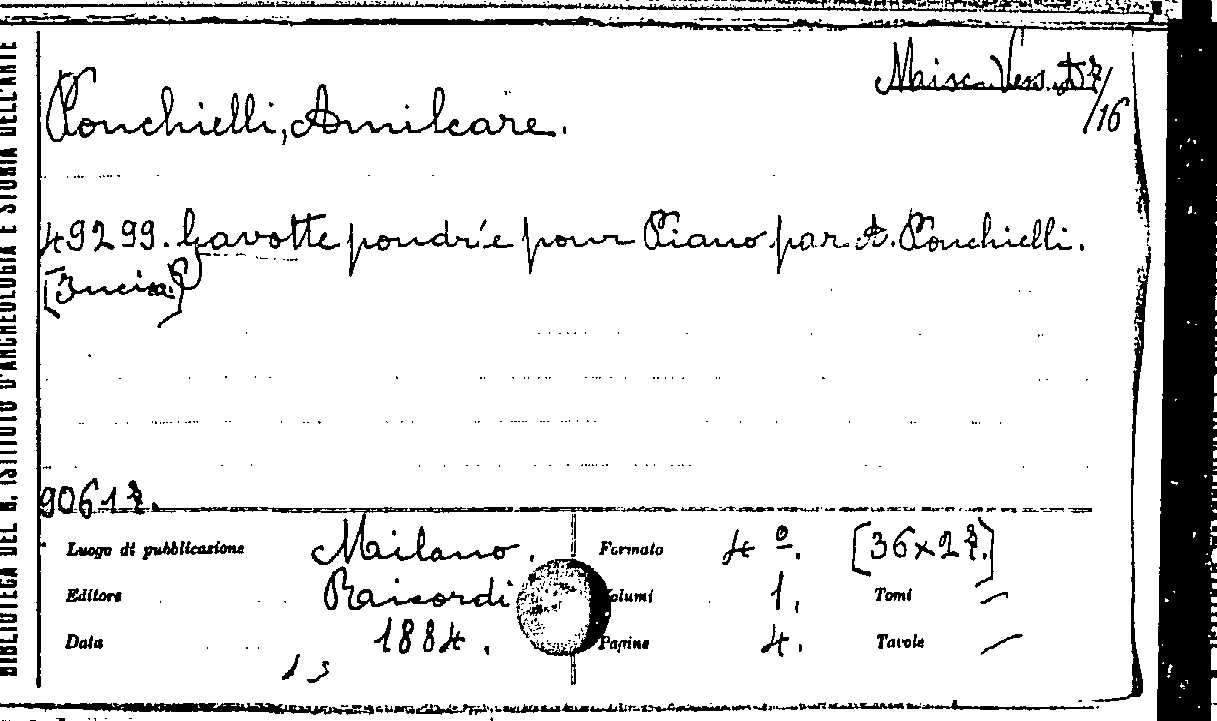 Maisc. Vess. A7/16
Ponchielli, Amilcare.
49299. Gavotte poudrée pour Piano par A. Ponchielli.
[Incisa.]
90617.
Luogo di pubblicazione Milano. Formato 4º. [36x27.]
Editore Raicordi Volumi 1. Tomi —
Data 1884. Pagine 4. Tavole —
BIBLIOTECA DEL R. ISTITUTO D'ARCHEOLOGIA E STORIA DELL'ARTE